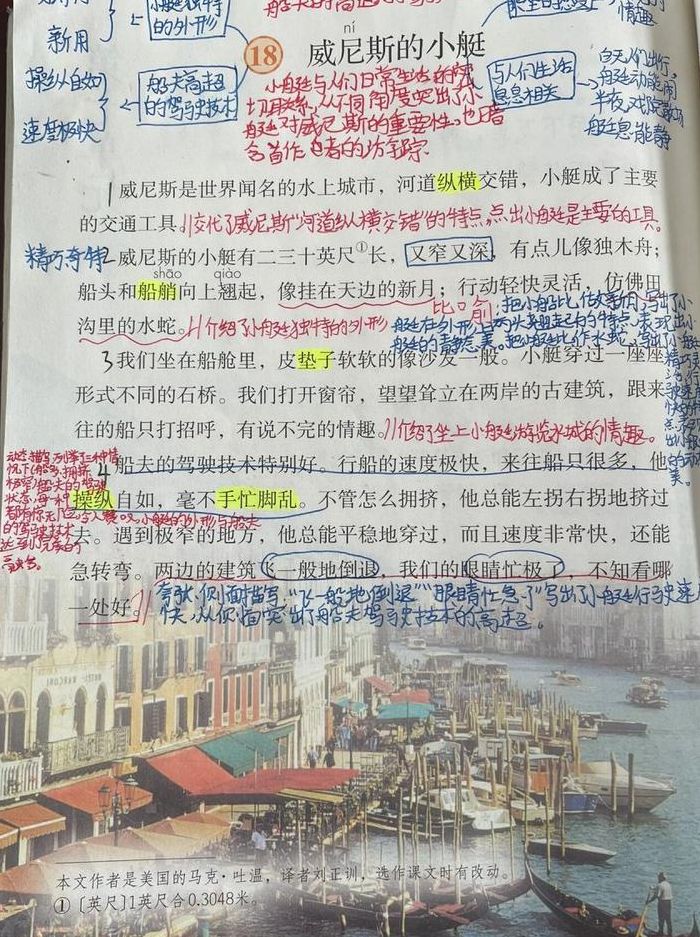 小艇独特
的外形
新用
操纵自如
速度极快
船夫高超
的驾驶技术
与人们生活
息息相关
白天人们出行,
船艇动能闹
半夜戏院散场
船艇息能静
情趣
ní
18 威尼斯的小艇
小艇与人们日常生活的密
切联系,从不同角度突出了小
艇对威尼斯的重要性。也暗
含着作者的访踪
1威尼斯是世界闻名的水上城市,河道纵横交错,小艇成了主要
的交通工具。//交代了威尼斯“河道纵横交错”的特点,点出小艇是主要的工具。
精巧奇特
2威尼斯的小艇有二三十英尺①长,又窄又深,有点儿像独木舟;
shāo qiào
船头和船艄向上翘起,像挂在天边的新月;行动轻快灵活,仿佛田
沟里的水蛇。//介绍了小艇独特的外形
比喻:把小艇比作新月,写出小
艇在外形上两头翘起的特点,表现出小
艇的静态美。把小艇比作水蛇,写出
3我们坐在船舱里,皮垫子软软的像沙发一般。小艇穿过一座座
形式不同的石桥。我们打开窗帘,望望耸立在两岸的古建筑,跟来
往的船只打招呼,有说不完的情趣。//介绍了坐上小艇游览水城的情趣。
4船夫的驾驶技术特别好。行船的速度极快,来往船只很多,他
操纵自如,毫不手忙脚乱。不管怎么拥挤,他总能左拐右拐地挤过
去。遇到极窄的地方,他总能平稳地穿过,而且速度非常快,还能
急转弯。两边的建筑飞一般地倒退,我们的眼睛忙极了,不知看哪
一处好。//
夸张、侧面描写,“飞一般地倒退”“眼睛忙急了”写出了小艇行驶速度
快,从侧面突出了船夫驾驶技术的高超。
本文作者是美国的马克·吐温,译者刘正训,选作课文时有改动。
①〔英尺〕1英尺合0.3048米。